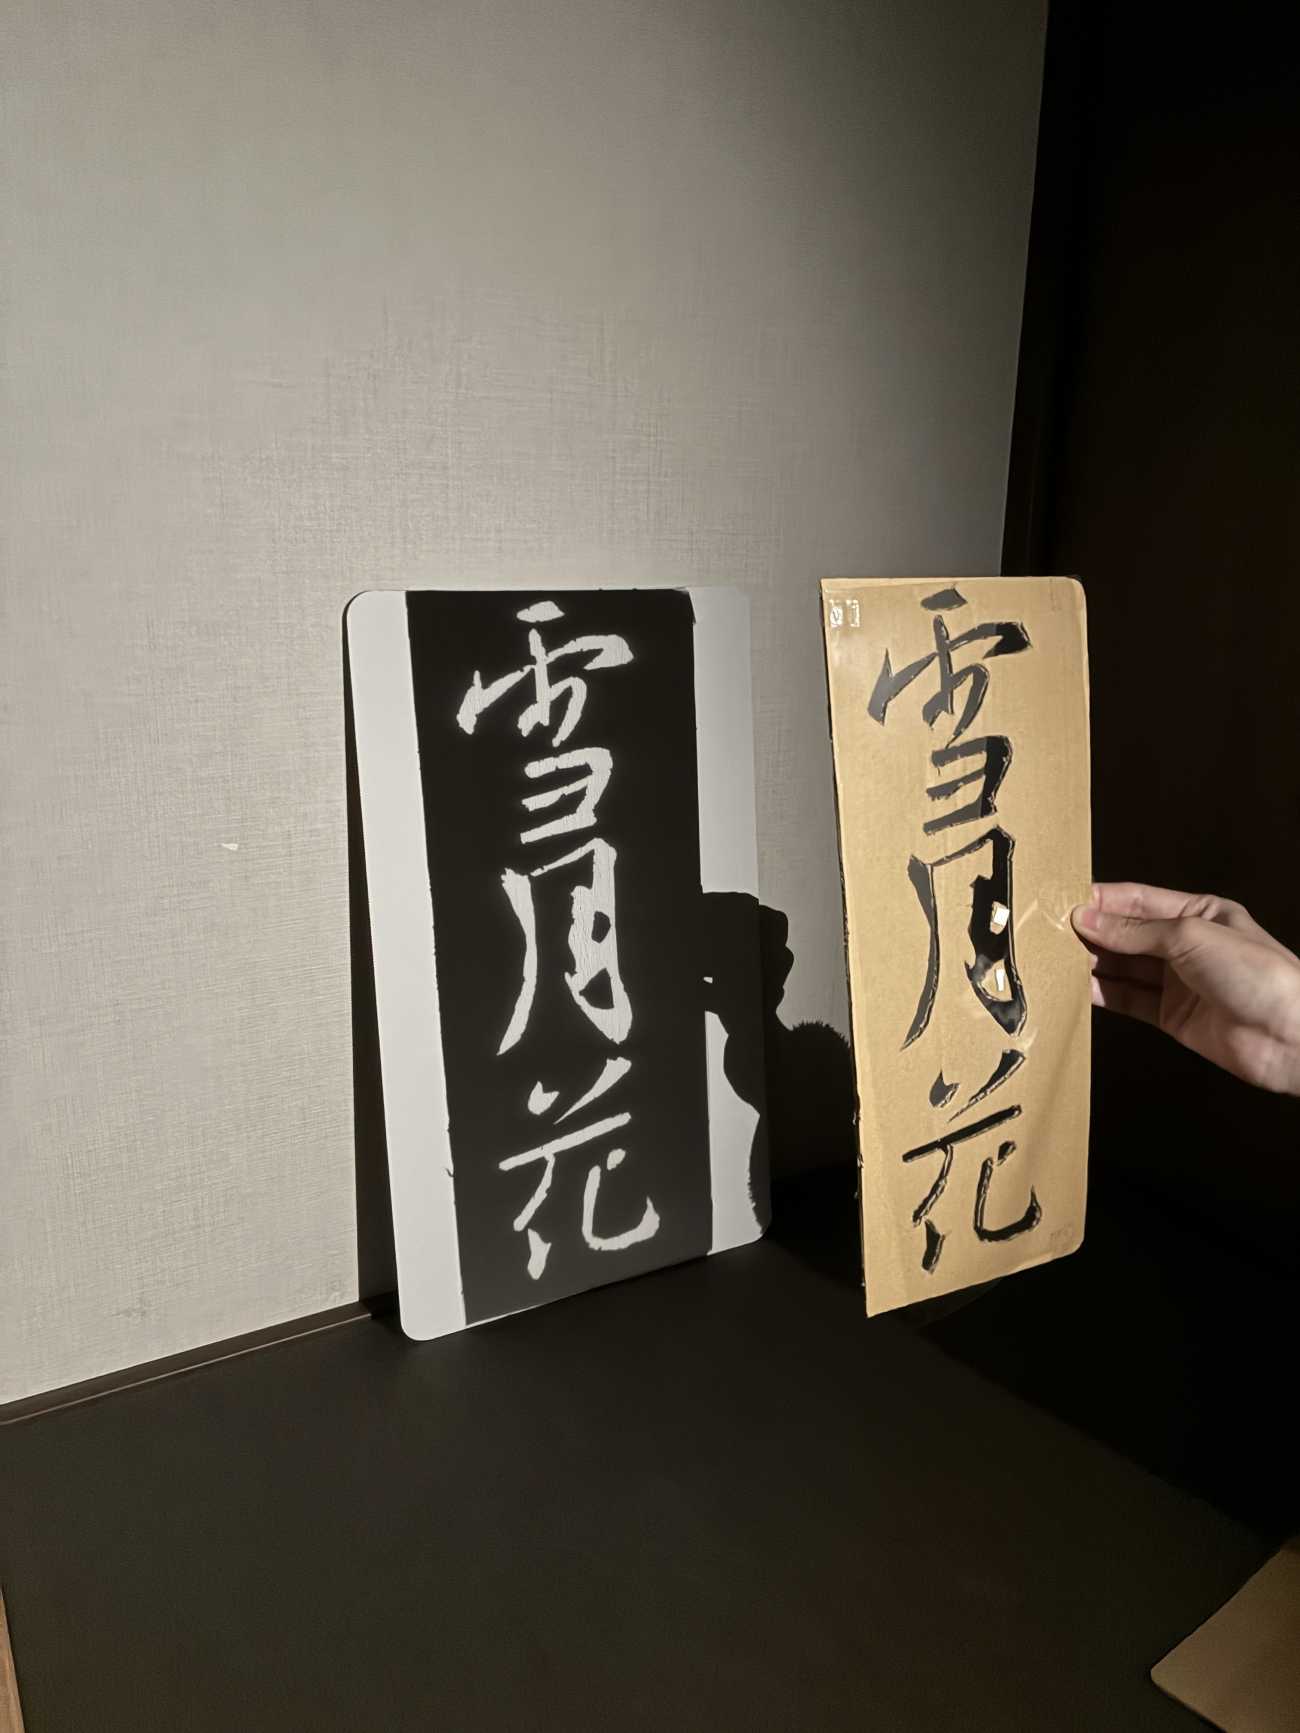 雪月花
雪月花